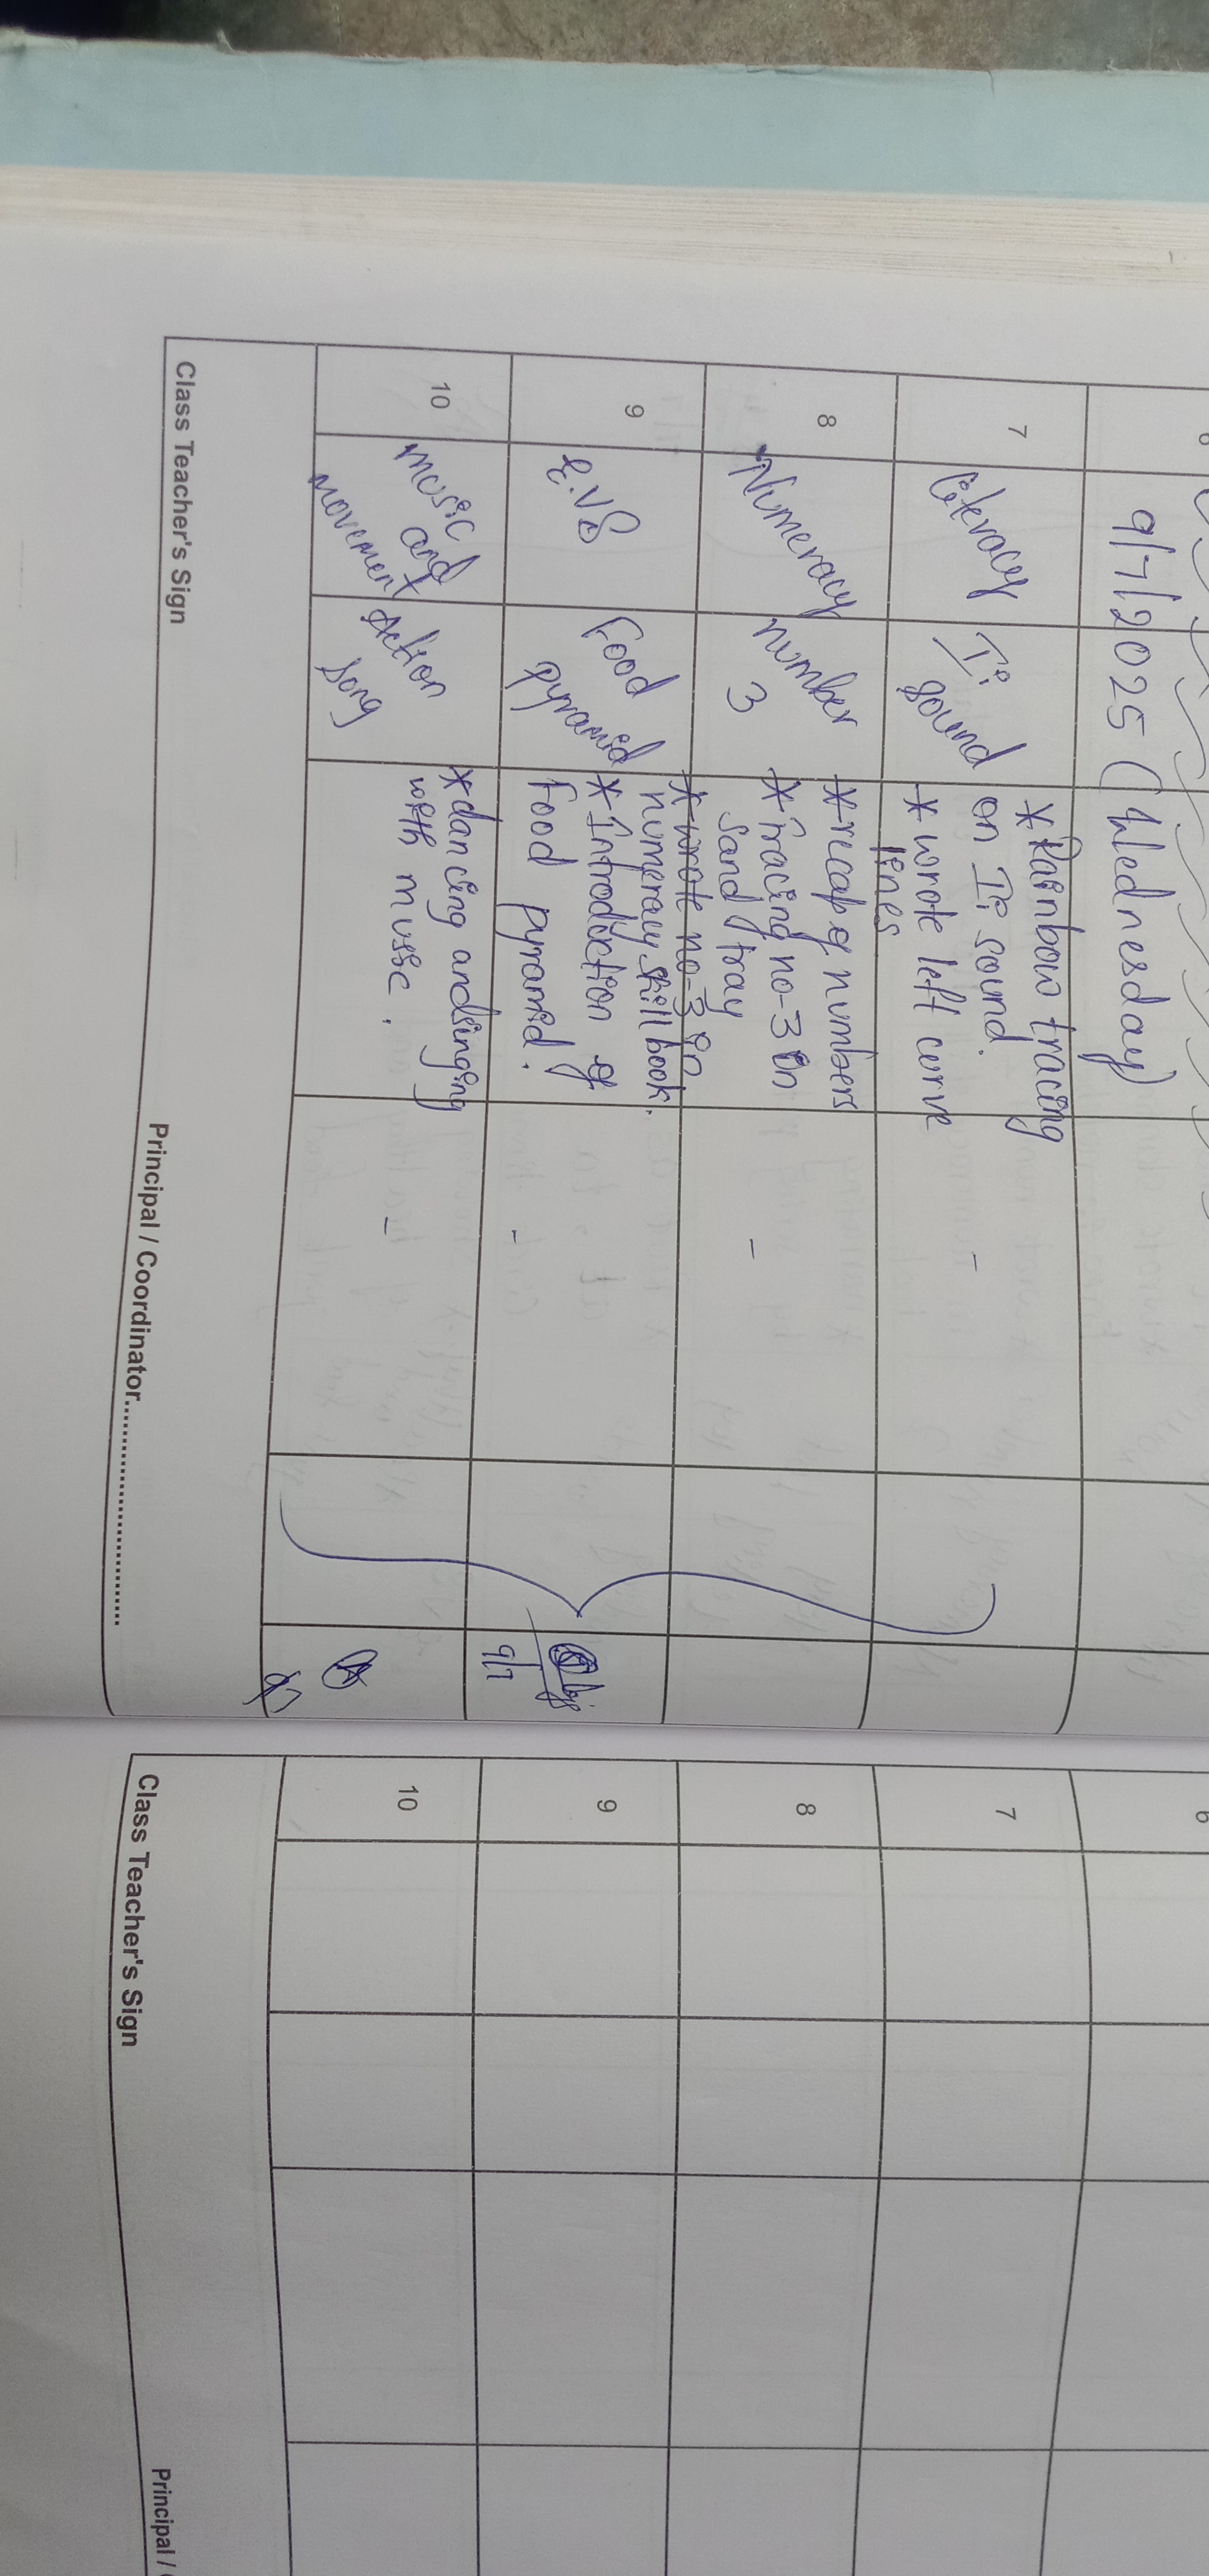 6
9/7/2025 (Wednesday)
7
Literacy
Ii
sound
* Rainbow tracing
on Ii sound.
* wrote left curve
lines
-
8
Numeracy
number
3
* recap of numbers
* Tracing no-3 on
sand tray
* wrote no-3 in
numeracy skill book.
-
9
E.V.S
Food
pyramid
* Introduction of
Food pyramid.
-
9/7
10
Music
and
movement
Action
Song
* dancing and singing
with music.
-
Class Teacher's Sign
Principal / Coordinator..............................
6
7
8
9
10
Class Teacher's Sign
Principal /